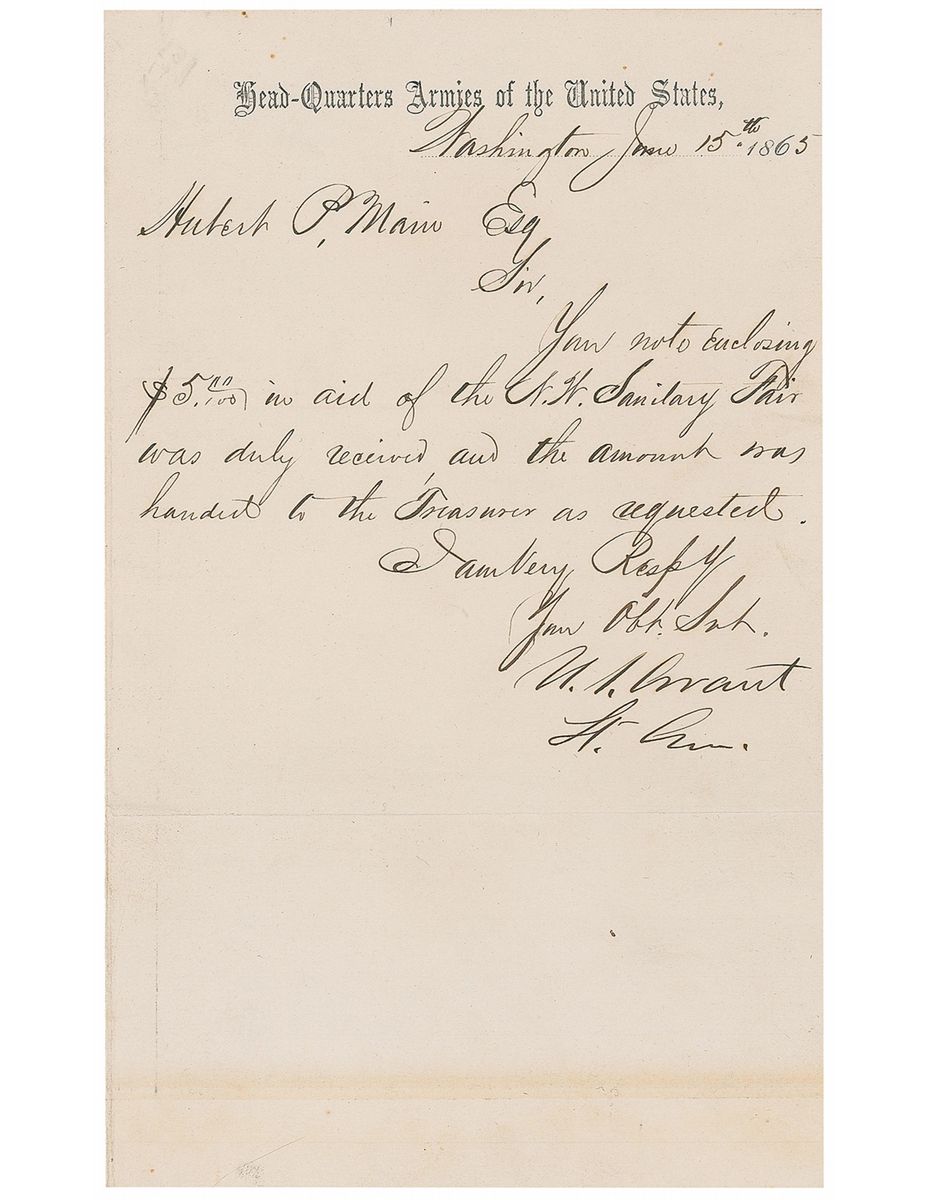 Head-Quarters Armies of the United States,
Washington June 15.th 1865
Hubert P. Main Esq
Sir,
Your note enclosing
$5.00/100 in aid of the N.W. Sanitary Fair
was duly received, and the amount was
handed to the Treasurer as requested.
I am Very Respy
Your Obt. Svt.
U. S. Grant
Lt. Gen.